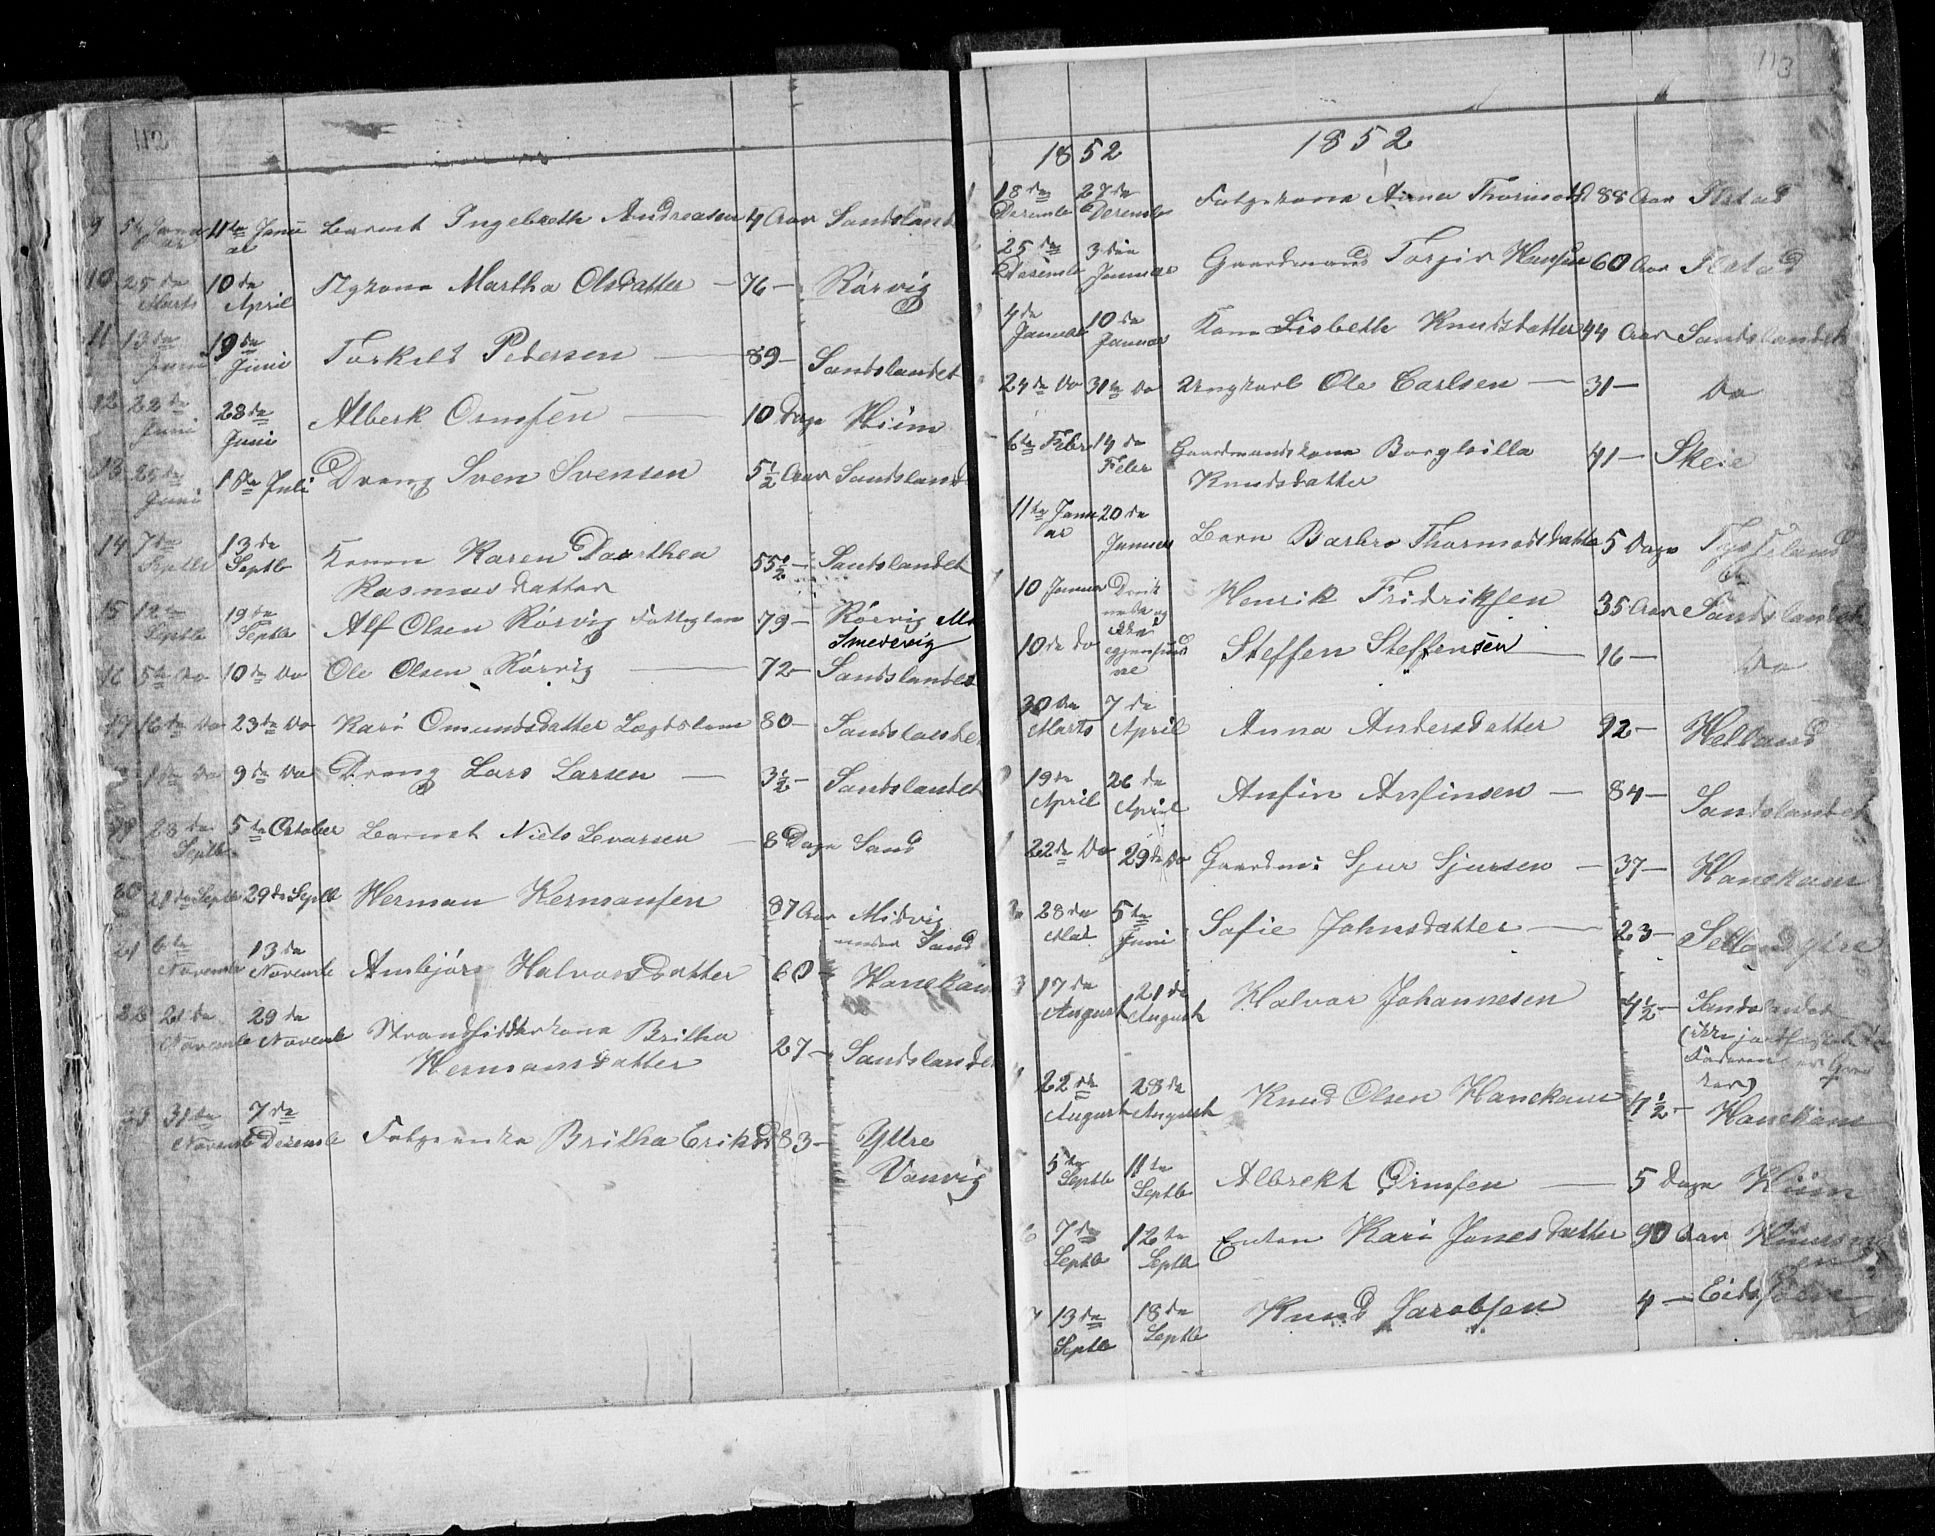 112
9 5te Janu ar 11te Janu ar Barnet Ingebreth Andreasen 4 Aar Sandsland
10 25 de Marts 10 de April Flykone Martha Olsdatter - 76 - Rørvig
11 13 de Juni 19 de Juni Torkild Pedersen 89 - Sandslandet
12 22 de Juni 28 de Juni Alberk Ormsen 10 Dage Hiim
13 25 de Juni 1 de Juli Dreng Sven Svensen 5 1/2 Aar Sandsland
14 7 de Septb 13 de Septb Konen Karen Daarthea 55 1/2 - Sandslandet
Rasmusdatter
15 12 te Septb 19 de Septb Alf Olsen Rørvig Fattiglem 79 - Rørvig
Smedevig
16 5te Do 10 de Do Ole Olsen Rørvig 72 - Sandslandet
17 16 de Do 23 de Do Kari Omundsdatter Lægdslem 80 - Sandslandet
1 de Do 9 de Do Dreng Lars Larsen - 3 1/2 - Sandslandet
19 28 de Septb 5te October Barnet Niels Levarsen - 8 Dage Sand
20 21 de Septb 29 de Septb Herman Hermansen 87 Aar Midvig
under Sand
21 6te Novemb 13 de Novemb Anbjør Halvorsdatter 60 - Hanekam
22 21 de Novemb 29 de Novemb Strandsidderkone Britha
Hermansdatter 27 - Sandslandet
23 31 de Novemb 7 de Decemb Folgeenke Britha Eriksd 83 - Ytre
Vanvig
113
1852 1852
1 18 de Decemb 27 de Decemb Folgekone Anna Thormodsd 88 Aar Fatad
25 de Decemb 3 die Januar Gaardmand Torjer Hansen 60 Aar Fatad
4 de Januar 10 de Januar Kone Lisbeth Knudsdatter 44 Aar Sandslandet
24 de Do 31 te Do Ungkarl Ole Carlsen - 31 - Do
6te Febr 14 de Febr Gaardmandskone Borghilla 41 - Skeie
Knudsdatter
11te Janu ar 20 de Januar Barn Barbro Thormodsdatter 5 Dage Tysseland
10 Januar Henrik Fridriksen 35 Aar Sandslandet
10 de Do Steffen Steffensen 16 - Do
30 te Marts 7 de April Anna Andersdatter 92 - Helland
19 de April 26 de April Anfin Anfinsen - 84 - Sandslandet
22 de Do 29 de Do Gaardm: Sjur Sjursen - 37 - Hanekam
28 de Mai 5te Juni Sofie Johnsdatter 23 - Selland ytre
3 17 de August 21 de August Halvar Johannesen 4 1/2 - Sandslandet
22 de August 28 de August Knud Olsen Hanekam 7 1/2 - Hanekam
5te Septb 11te Septb Albrekt Ormsen 5 Dage Hiim
6 7 de Septb 12 te Septb Enken Kari Jonesdatter 90 Aar
7 13 de Septb 18 de Septb Knud Jacobsen 4 -